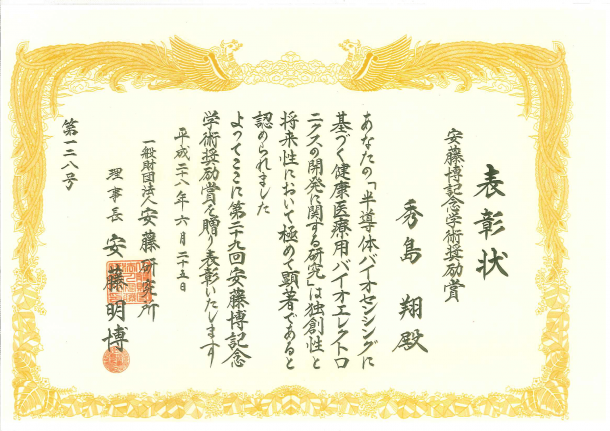 表彰状
安藤博記念学術奨励賞
秀島 翔殿
あなたの「半導体バイオセンシングに
基づく健康医療用バイオエレクトロ
ニクスの開発に関する研究」は独創性と
将来性において極めて顕著であると
認められました
よってここに第二十九回安藤博記念
学術奨励賞を贈り表彰いたします
平成二十八年六月二十五日
一般財団法人 安藤研究所
理事長 安藤明博
第一三八号